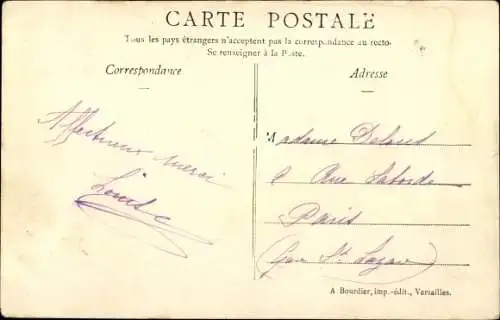 CARTE POSTALE
Tous les pays étrangers n'acceptent pas la correspondance au recto-
Se renseigner à la Poste.
Correspondance
Adresse
Affectueux merci
Louise
Madame
Rue Laborde
Paris
(Gare St Lazare)
A Bourdier, imp.-édit., Versailles.